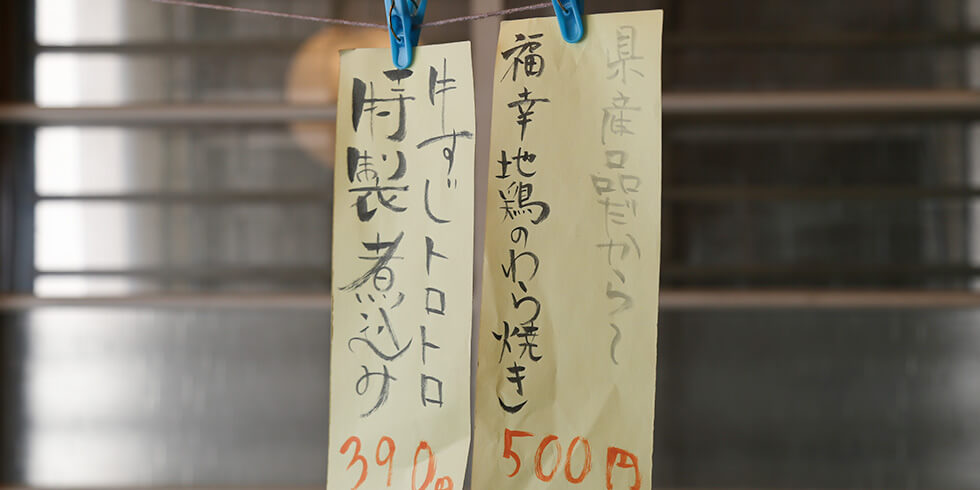 県産品だから〜
福幸地鶏のわら焼き
500円
牛すじトロトロ
特製煮込み
390円